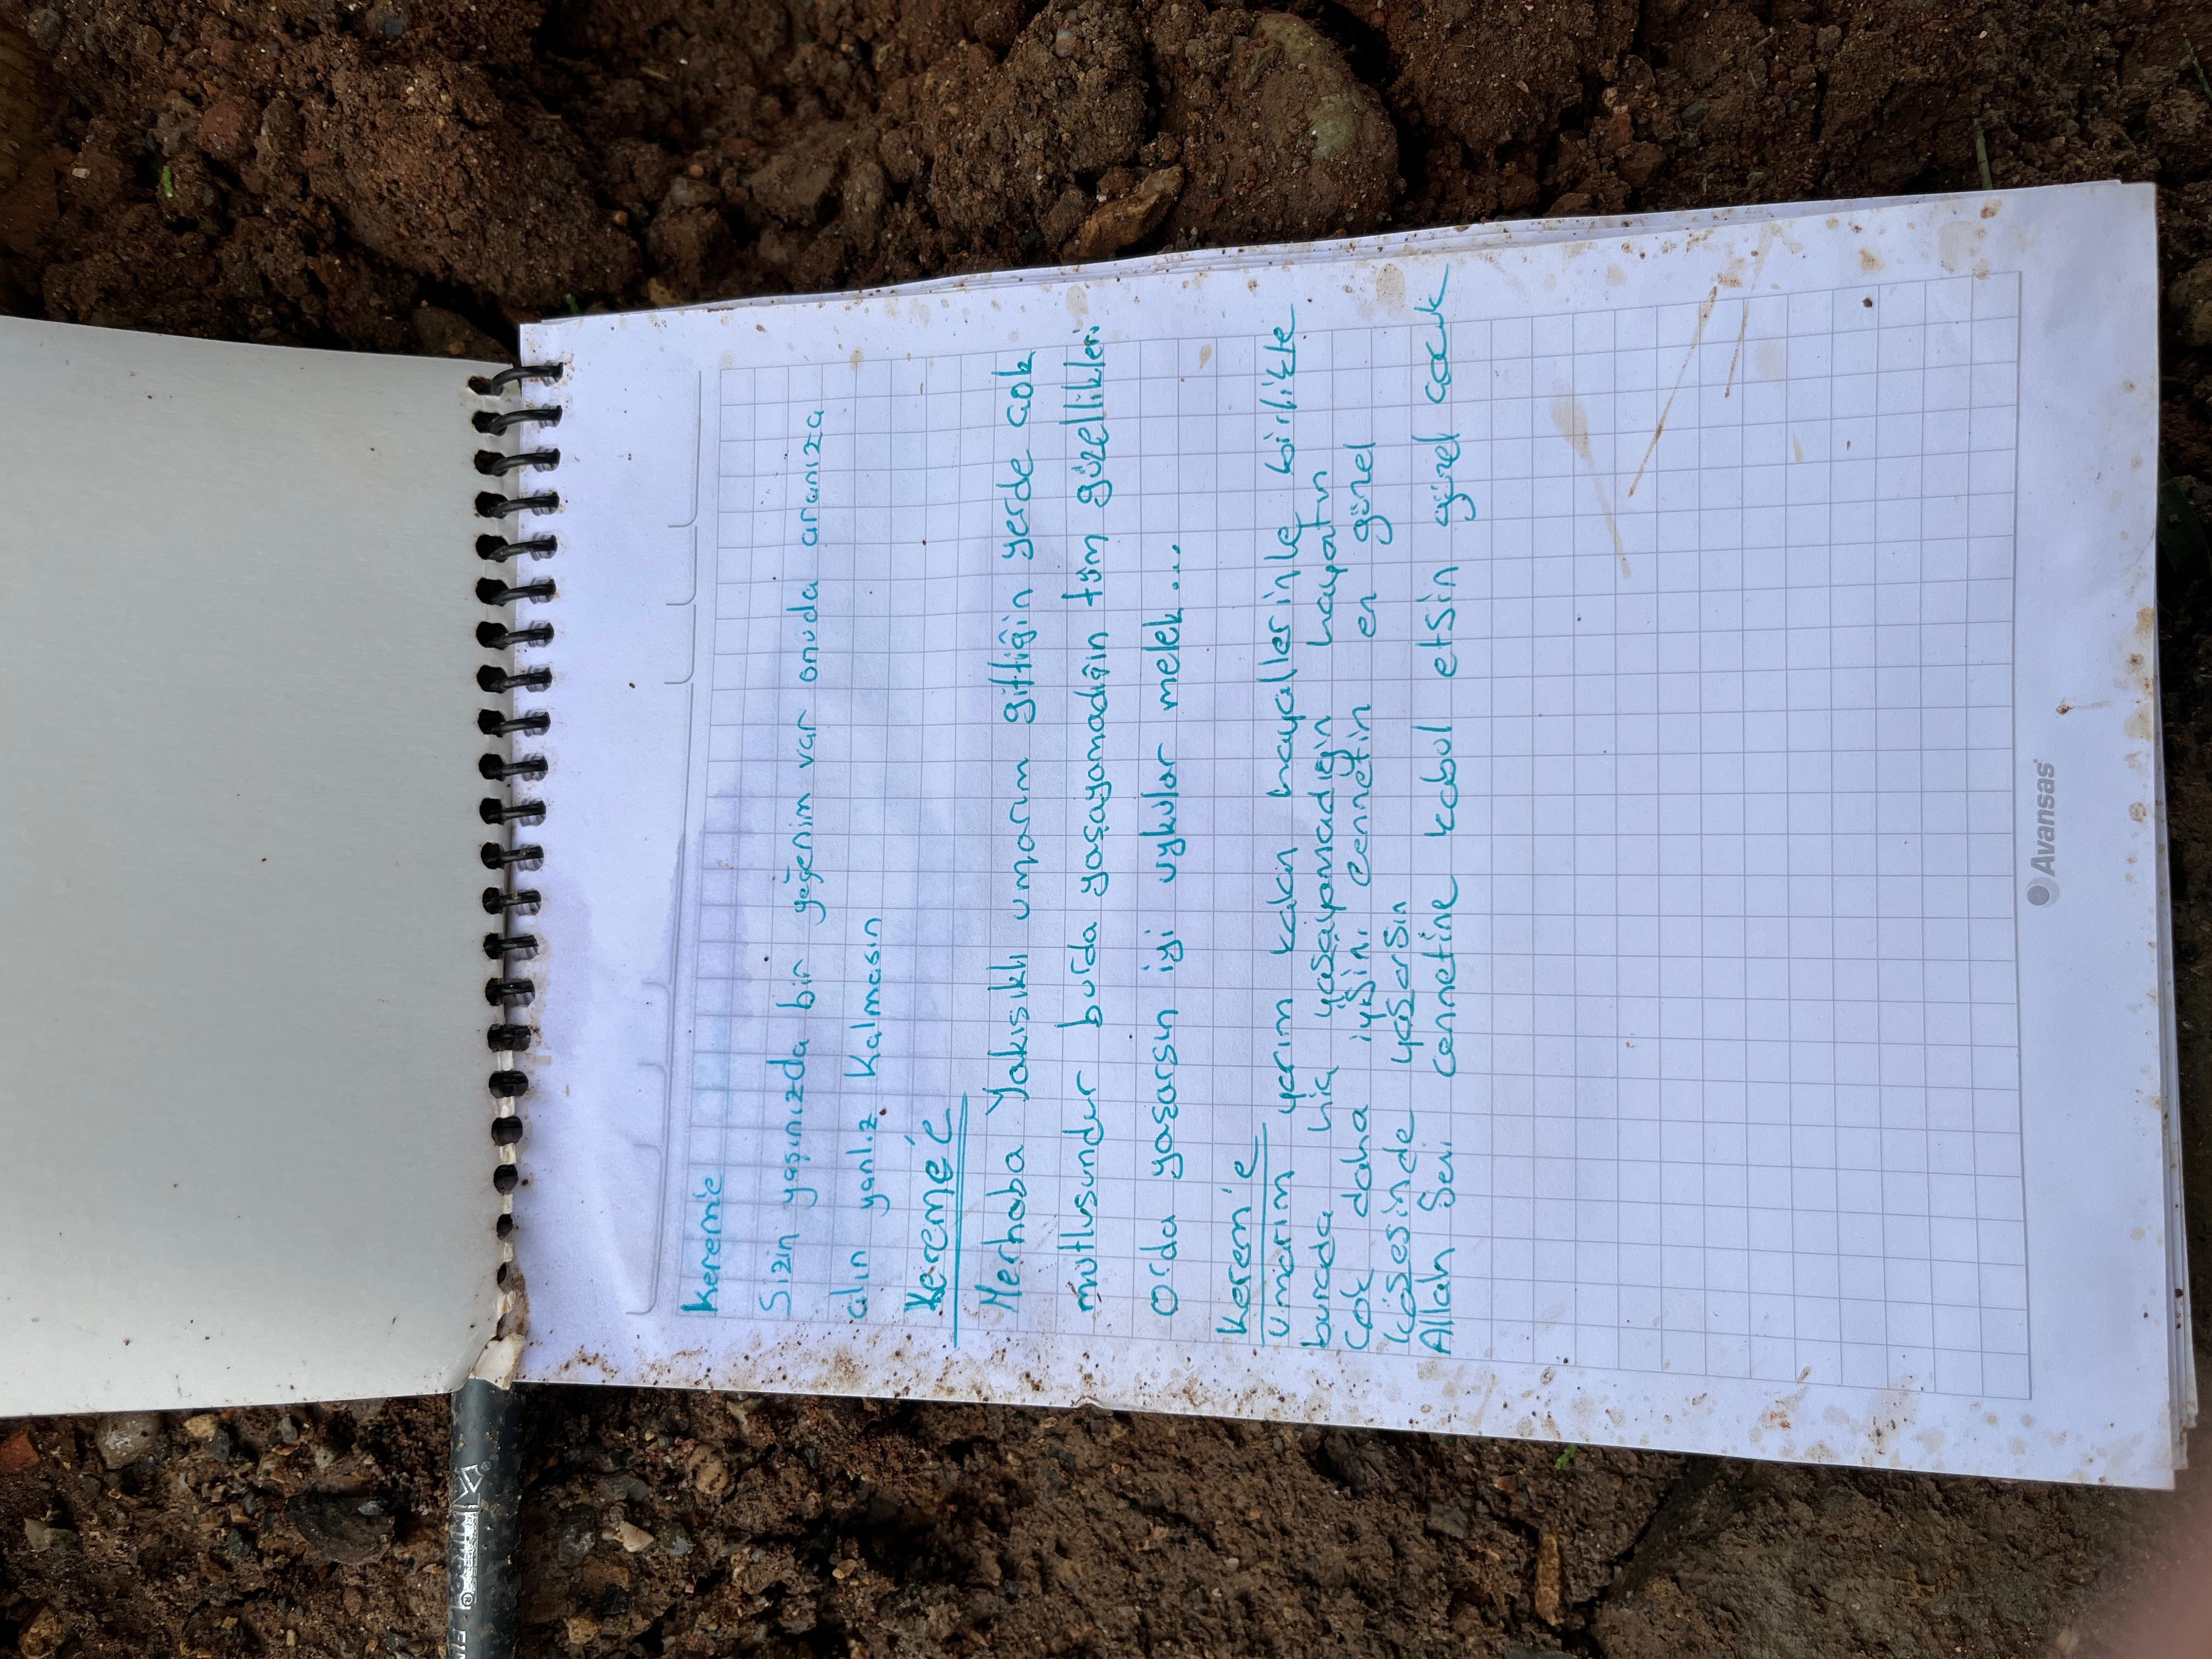 Kerem'e
Sizin yaşınızda bir yeğenim var onuda aranıza
alın yanlız kalmasın
Kereme'e
Merhaba Yakısıklı umarım gittiğin yerde cok
mutlusundur burda yaşayamadığın tüm güzellikleri
Orda yaşarsın iyi uykular melek...
Kerem'e
umarim yarım kalan hayallerinle birlikte
burada hiç yaşayamadığın hayatın
Cok daha iyisini cennetin en güzel
Kösesinde yaşarsın
Allah Seni cennetine kabul etsin güzel çocuk
Avansas